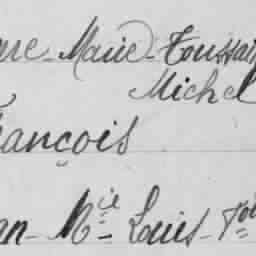 Marie-Toussain
Michel
rançois
M^ie Louis-